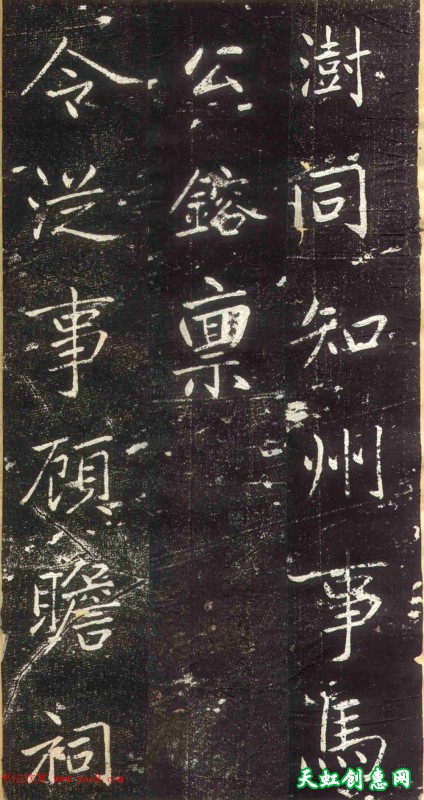 澍同知州事馮
公鎔禀
令從事顧瞻祠
天虹创惠网